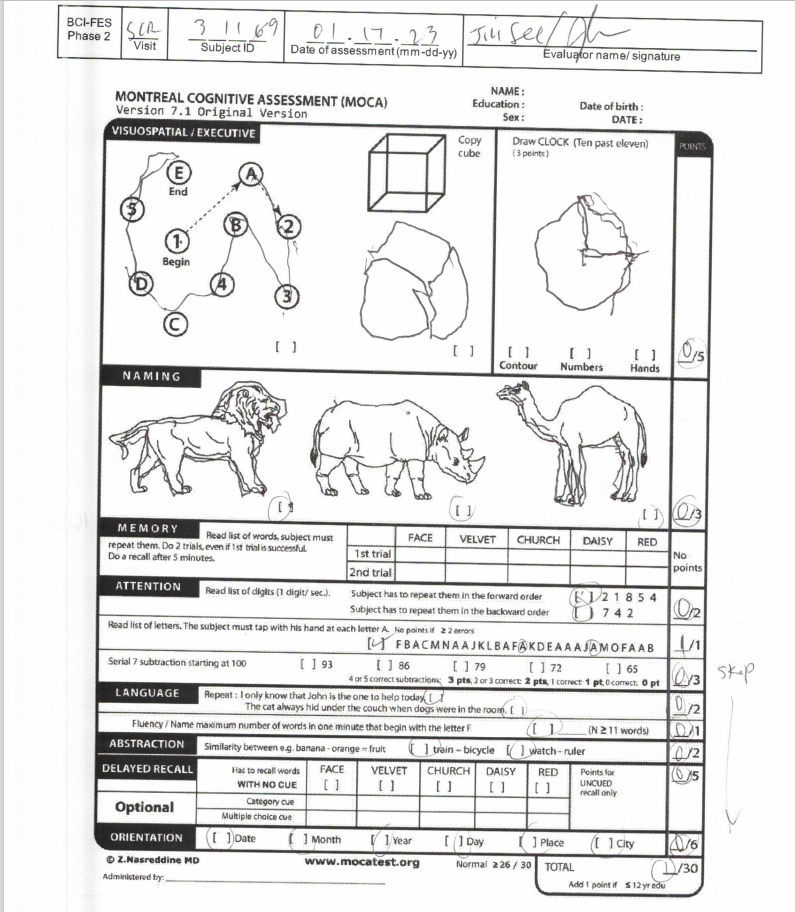 BCI-FES Phase 2
SCR Visit
3 11 69 Subject ID
01.17.23 Date of assessment (mm-dd-yy)
Jin See/ Evaluator name/ signature
MONTREAL COGNITIVE ASSESSMENT (MOCA)
Version 7.1 Original Version
NAME :
Education :
Sex :
Date of birth :
DATE :
VISUOSPATIAL / EXECUTIVE
E End
A
5
B
2
1 Begin
D
4
3
C
[ ]
Copy cube
[ ]
Draw CLOCK (Ten past eleven)
(3 points)
[ ] Contour
[ ] Numbers
[ ] Hands
POINTS
0/5
NAMING
[ ]
[ ]
[ ]
0/3
MEMORY
Read list of words, subject must repeat them. Do 2 trials, even if 1st trial is successful.
Do a recall after 5 minutes.
FACE VELVET CHURCH DAISY RED
1st trial
2nd trial
No points
ATTENTION
Read list of digits (1 digit/ sec.).
Subject has to repeat them in the forward order [ ] 2 1 8 5 4
Subject has to repeat them in the backward order [ ] 7 4 2
0/2
Read list of letters. The subject must tap with his hand at each letter A. No points if ≥ 2 errors
[✓] F B A C M N A A J K L B A F A K D E A A A J A M O F A A B
1/1
Serial 7 subtraction starting at 100
[ ] 93 [ ] 86 [ ] 79 [ ] 72 [ ] 65
4 or 5 correct subtractions: 3 pts, 2 or 3 correct: 2 pts, 1 correct: 1 pt, 0 correct: 0 pt
0/3
skip
LANGUAGE
Repeat : I only know that John is the one to help today. [ ]
The cat always hid under the couch when dogs were in the room. [ ]
0/2
Fluency / Name maximum number of words in one minute that begin with the letter F [ ] ____ (N ≥ 11 words)
0/1
ABSTRACTION
Similarity between e.g. banana - orange = fruit [ ] train – bicycle [ ] watch - ruler
0/2
DELAYED RECALL
Has to recall words WITH NO CUE
FACE [ ] VELVET [ ] CHURCH [ ] DAISY [ ] RED [ ]
Points for UNCUED recall only
0/5
Optional
Category cue
Multiple choice cue
ORIENTATION
[ ] Date [ ] Month [ ] Year [ ] Day [ ] Place [ ] City
0/6
© Z.Nasreddine MD
www.mocatest.org
Normal ≥ 26 / 30
TOTAL 1/30
Add 1 point if ≤ 12 yr edu
Administered by: